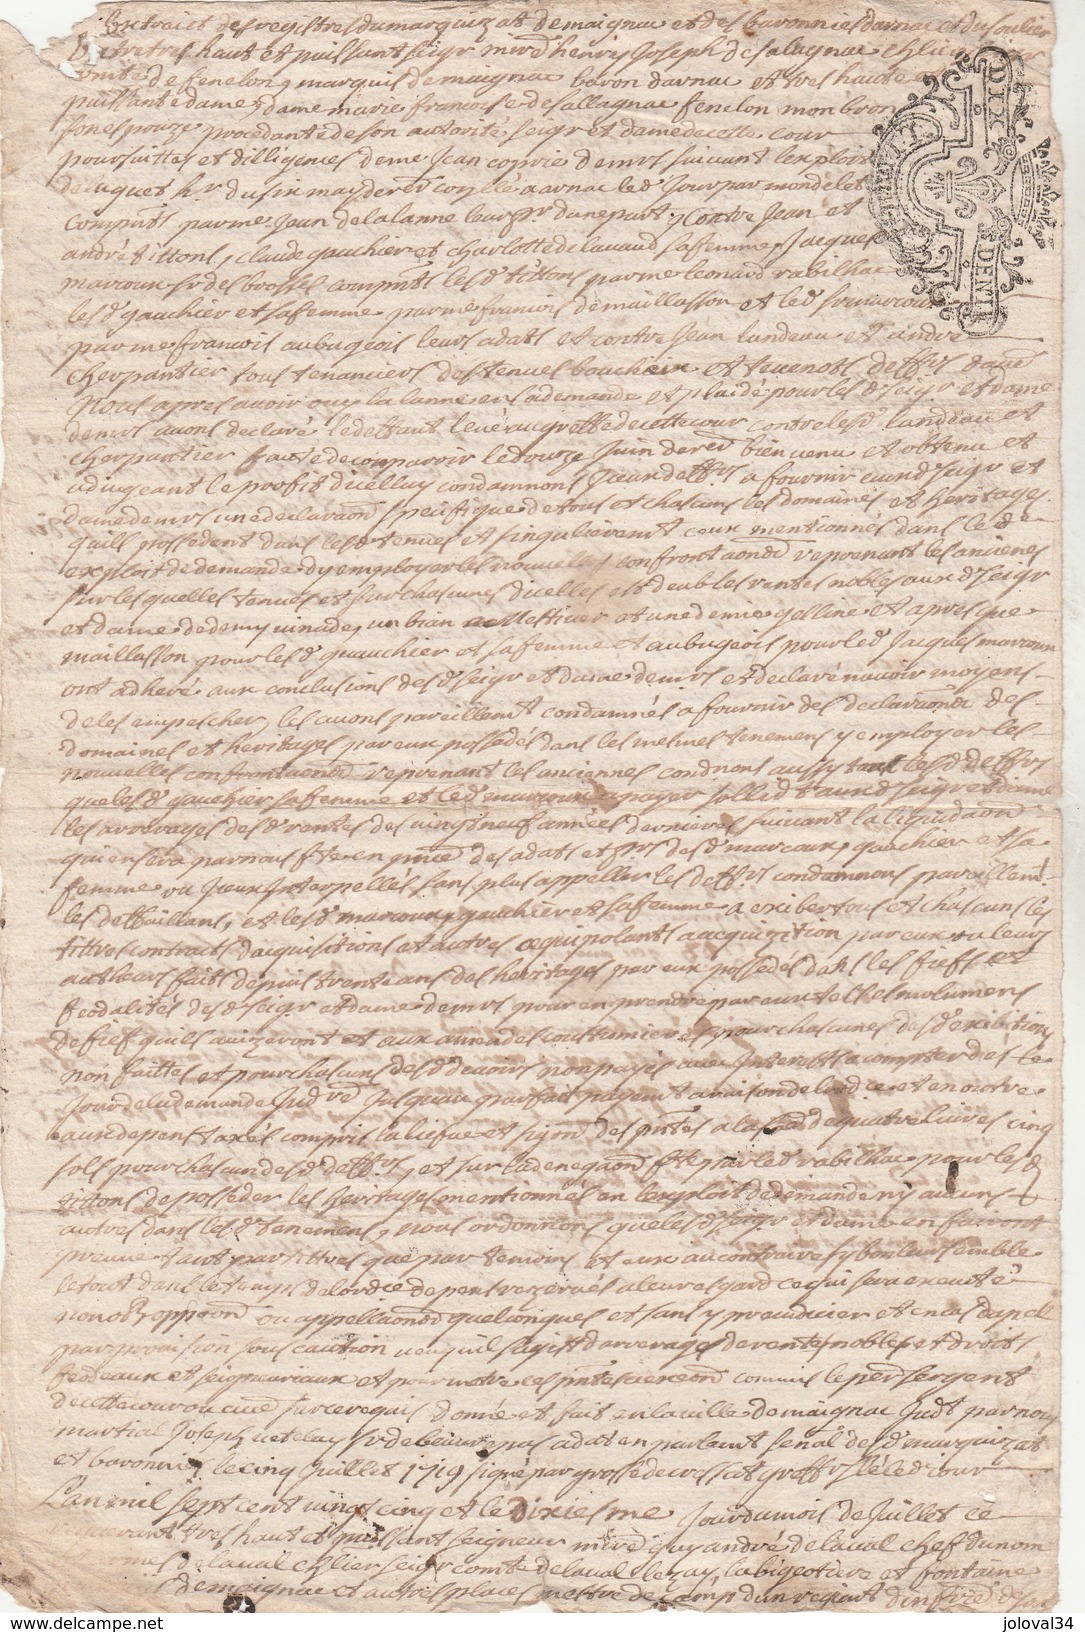 Extrait des registres du marquizat de maignac et des baronnies darnac et du soulier
Entre tres haut et puissant seigr mire henry Joseph de salagnac chlier
comte de fenelon, marquis de maignac baron darnac et tres haute et
puissante dame, dame marie francoise de sallagnac fenelon monbron
son espouze procedante de son autorité seigr et dame de cette cour
poursuittes et dilligences de me Jean
du six may der controllé a arnac led Jour par mondelet
comput par me Jean delalanne leur pr dune part, contre Jean et
andré tittons, claude gauchier et charlotte de lavaud sa femme, Jacques
marcoux sr des brosses comput les d tittons par me leonard rabilhac
les d gauchier et sa femme par me francois de maillasson et led sr marcoux
par me francois aubugeois leurs adats et contre Jean landeau et andré
cherpantier tous tenanciers des tenues boucheix et tevenots deffrs dautre
Nous apres avoir ouy lalanne en sa demande et plaidé pour les d seigr et dame
demrs avons declaré le deffaut levé au greffe de cette cour contre les d landeau et
cherpantier faute de comparoir le douze Juin der bien venu et obtenu et
adjugeant le proffit dicelluy condamnons Jceux deffrs a fournir auxd seigr et
dame demrs une declaraon speciffique de tous et chascuns les domaines et heritages
quils possedent dans lesd tenues et singulierement ceux mentionnés dans led
exploit de demande dy employer les nouvelles confrontaons reprenant les anciennes
sur lesquelles tenues et sur chascunes dicelles est deub les rentes nobles aux d seigr
et dame de demy vinade, un bian a Mestiver et une demie gelline et apres que
maillasson pour les d gauchier et sa femme et aubugeois pour led Jacques marcoux
ont adheré aux conclusions des d seigr et dame demrs et declaré navoir moyens
de les empescher, les avons pareillement condamnés a fournir des declaraons des
domaines et heritages par eux possedés dans les mesmes tenemens y employer les
nouvelles confrontaons reprenant les anciennes condnons aussy tous les d deffrs
que les d gauchier sa femme et led marcoux a payer sollidt aux d seigr et dame
les arrerages des d rentes de vingt neuf années dernieres suivant la liquidaon
qui en sera par nous fte en pnce des adats et prs des d marcoux, gauchier et sa
femme ou Jceux Interpellés sans plus appeller les deffrs condamnons pareillemt
les deffaillans, et les d marcoux, gauchier et sa femme a exiber tous et chascuns les
tittres contrats dacquisitions et autres equipolants a acquizition par eux ou leurs
autheurs faits depuis trente ans des heritages par eux possedés dans les fiefs et
feodalités des d seigr et dame demrs pour en prendre par eux tels emolumens
de fief quils avizeront et aux amendes coustumieres pour chascunes des d exibitions
non faittes et pour chascuns des d devoirs non payés avec Interests a compter des le
Jour de la demande Judre Jusquau parfait payement a raison de lordce et en outre
aux depens taxés compris la liefve et sigon des pntes a la somme de quatre livres cinq
sols pour chascun des d deffrs, et sur la denegaon fte par led rabilhac pour les d
tittons de posseder les heritages mentionnés en lexploit de demande ny aucuns
autres dans les d tenemens, nous ordonnons que les d seigr et dame en fairont
preuve tant par tittres que par temoins et eux au contraire sy bon leur semble
le tout dans le temps de lordce depens rezervés a leur esgard ce qui sera executé
nonobt oppoon ou appellaons quelconques et sans y preudicier et en cas dapel
par provision sous caution veu quil sagist darrerages de rentes nobles et droits
feodeaux et seigneuriaux et pour mettre ces pntes a execon commis le per sergent
de cette cour ou autre sur ce requis donné et fait en la ville de maignac Judt par nous
martial Joseph sr de beaurepas adat en parlemt senal des d marquizat
et baronnies le cinq Juillet 1719 signé par grosse greff scéllé led Jour
Lan mil sept cent vingt cinq et le Dixiesme Jour du mois de Juillet ce
requerant tres haut et puissant seigneur mire guy andré de laval chef du nom
et armes de laval chlier seigr comte de laval lezay, la bigeotiere et fontaine
de maignac et autres places mestre de camp dun regimt dinffrie
DIX
DEN.IER
joloval34
www.delcampe.net